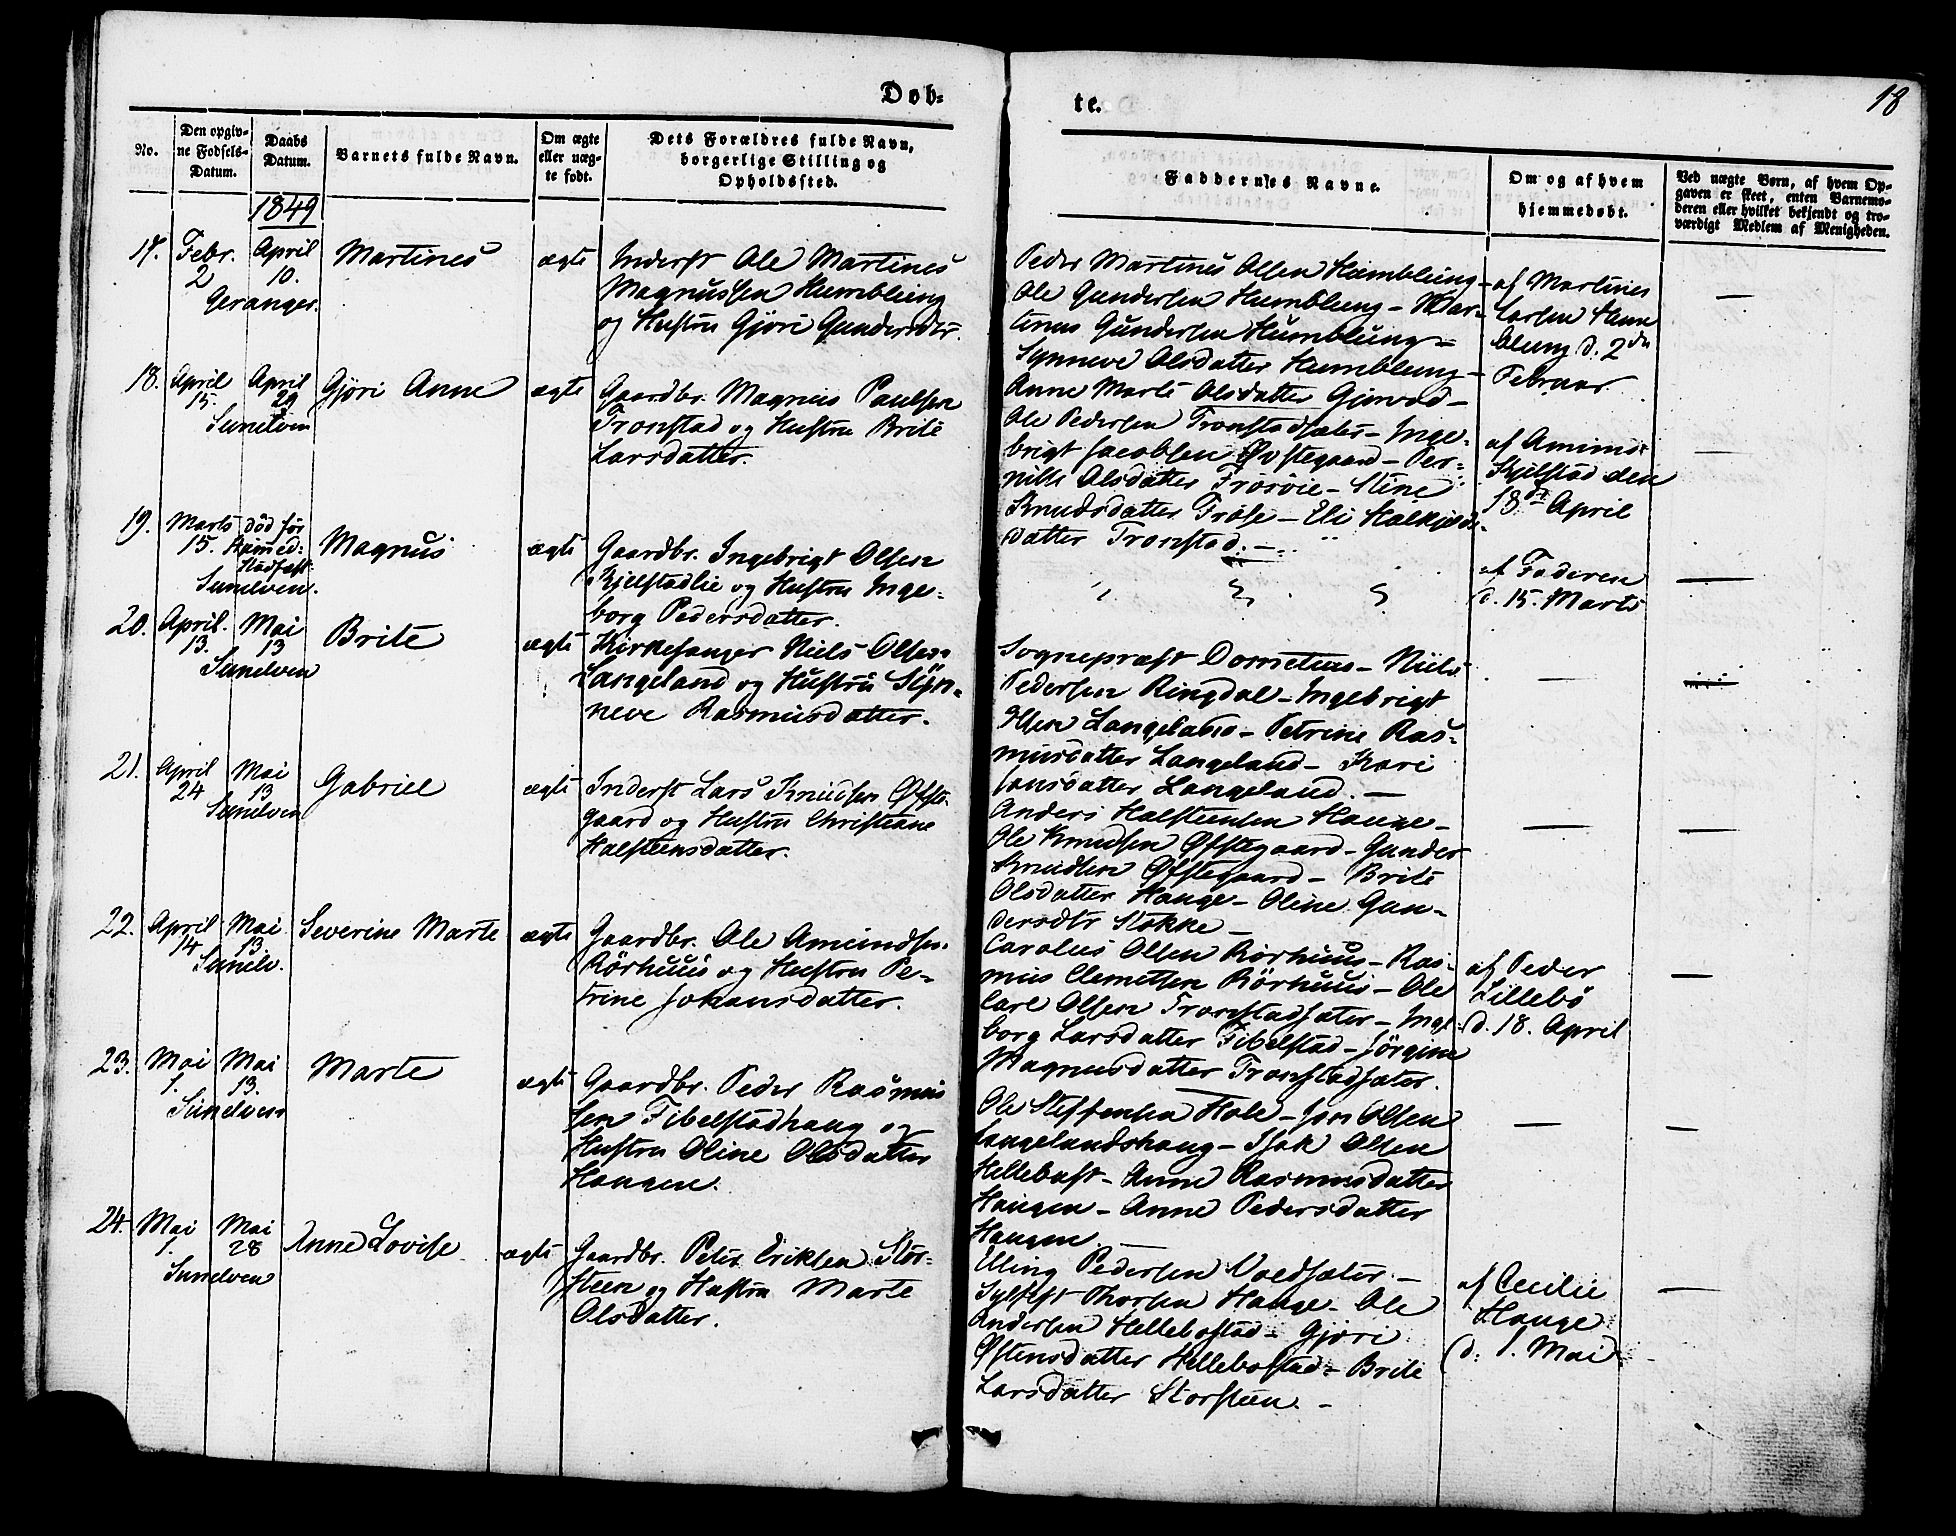 Døb-
te.
18
No.
Den opgiv-
ne Fødsels-
Datum.
Daabs
Datum.
Barnets fulde Navn.
Om ægte
eller uæg-
te født.
Dets Forældres fulde Navn,
borgerlige Stilling og
Opholdssted.
Faddernes Navne.
Om og af hvem
hjemmedøbt.
Ved uægte Børn, af hvem Op-
gaven er skeet, enten Barnemo-
deren eller hvilket bekjendt og tro-
værdigt Medlem af Menigheden.
1849
17.
Febr.
2
April
10.
Geranger.
Martines
ægte
Inderst Ole Martines
Magnussen Humblung
og Hustru Gjøri Gundersdtr.
Peder Martinus Olsen Humblung -
Ole Gundersen Humblung - Mar-
tinus Gundersen Humblung -
Synneve Olsdatter Humblung -
Anne Marte Olsdatter Gjervad -
af Martines
Larsen Hum
blung d. 2den
Februar
—
18.
April
15.
April
29
Sunelven
Gjøri Anne
ægte
Gaardbr. Magnus Paulsen
Tronstad og Hustru Brite
Larsdatter.
Ole Pedersen Tronstadsæter - Inge-
brigt Jacobsen Øvstegaard - Per-
nille Olsdatter Frøsvie - Stine
Knudsdatter Frøse - Eli Halkjelds-
datter Tronstad. -
af Amund
Kjelstad den
18de April
—
19.
Marts
15.
død før
Daabens
Stadfæst.
Sunelven.
Magnus
ægte
Gaardbr. Ingebrigt Olsen
Kjelstadlie og Hustru Inge-
borg Pedersdatter.
af Faderen
d. 15. Marts
—
20.
April
13.
Mai
13
Sunelven
Brite
ægte
Kirkesanger Niels Olsen
Langeland og Hustru Syn-
neve Rasmusdatter.
Sognepræst Dometius - Niels
Pedersen Ringdal - Ingebrigt
Olsen Langeland - Petrine Ras-
musdatter Langeland - Kari
Jonsdatter Langeland. -
—
21.
April
24
Mai
13
Sunelven
Gabriel
ægte
Inderst Lars Knudsen Øfste-
gaard og Hustru Christiane
Halsteinsdatter.
Anders Halsteensen Hauge -
Ole Knudsen Øfstegaard - Gunder
Knudsen Øfstegaard - Brite
Olsdatter Hauge - Oline Gun-
dersdtr Stokke -
—
—
22.
April
14
Mai
13.
Sunelv.
Severine Marte
ægte
Gaardbr. Ole Amundsen
Rörhuus og Hustru Pe-
trine Johansdatter.
Carolus Olsen Rörhuus - Ras-
mus Clemetsen Rörhuus - Ole
Carl Olsen Tronstadsæter - Inge-
borg Larsdatter Fibelstad - Jørgine
Magnusdatter Tronstadsæter.
af Peder
Lillebö
d. 18. April
—
23.
Mai
1.
Mai
13.
Sunelven
Marte
ægte
Gaardbr. Peder Rasmus
sen Fibelstadhaug og
Hustru Oline Olsdatter
Haugen.
Ole Steffensen Hole - Jon Olsen
Langelandshaug - Isak Olsen
Hellebust - Anne Rasmusdatter
Haugen - Anne Pedersdatter
Haugen
—
—
24.
Mai
1.
Mai
28
Sunelven
Anne Lovise
ægte
Gaardbr. Peter Eriksen Stor-
steen og Hustru Marte
Olsdatter.
Elling Pedersen Voldsæter -
Sylfest Thorsen Hauge - Ole
Andersen Hellebostad - Gjøri
Østensdatter Hellebostad - Brite
Larsdatter Storsteen. -
af Cecilie
Hauge
d. 1. Mai
—